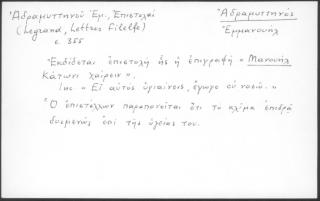 Ἀδραμυττηνοῦ Ἐμ., Ἐπιστολαί
(Legrand, Lettres Filelfe)
σ. 355
Ἀδραμυττηνός
Ἐμμανουήλ
Ἐκδίδεται ἐπιστολή ἧς ἡ ἐπιγραφή "Μανουήλ
Κάτωνι χαίρειν".
"Εἰ αὐτός ὑγιαίνεις, ἔγωγε οὐ νοσῶ."
Ὁ ἐπιστέλλων παραπονεῖται ὅτι τό κλῖμα ἐπιδρᾷ
δυσμενῶς ἐπί τῆς ὑγείας του.